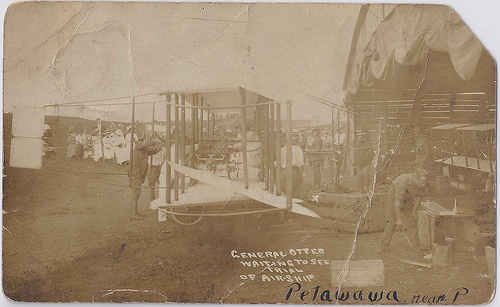 GENERAL OTTER
WAITING TO SEE
TRIAL
OF AIR-SHIP
x
Petawawa, near P